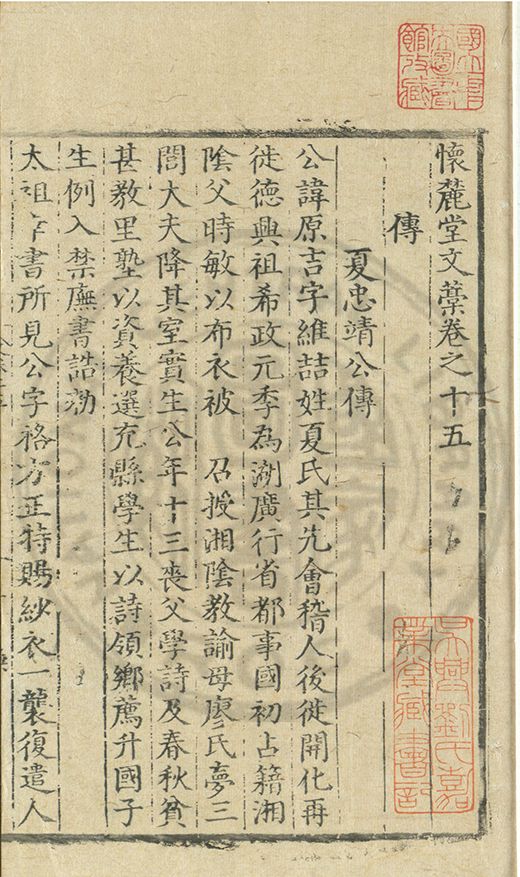 懷麓堂文藁卷之十五
傳
夏忠靖公傳
公諱原吉字維喆姓夏氏其先會稽人後徙開化再
徙德興祖希政元季為湖廣行省都事國初占籍湘
陰父時敏以布衣被 召授湘陰教諭母廖氏夢三
閭大夫降其室實生公年十三喪父學詩及春秋貧
甚教里塾以資養選充縣學生以詩領鄉薦升國子
生例入禁廡書誥勑
太祖 書所見公字格方正特賜紗衣一襲復遣人
國立中央圖書館收藏
吳興劉氏嘉業堂藏書記